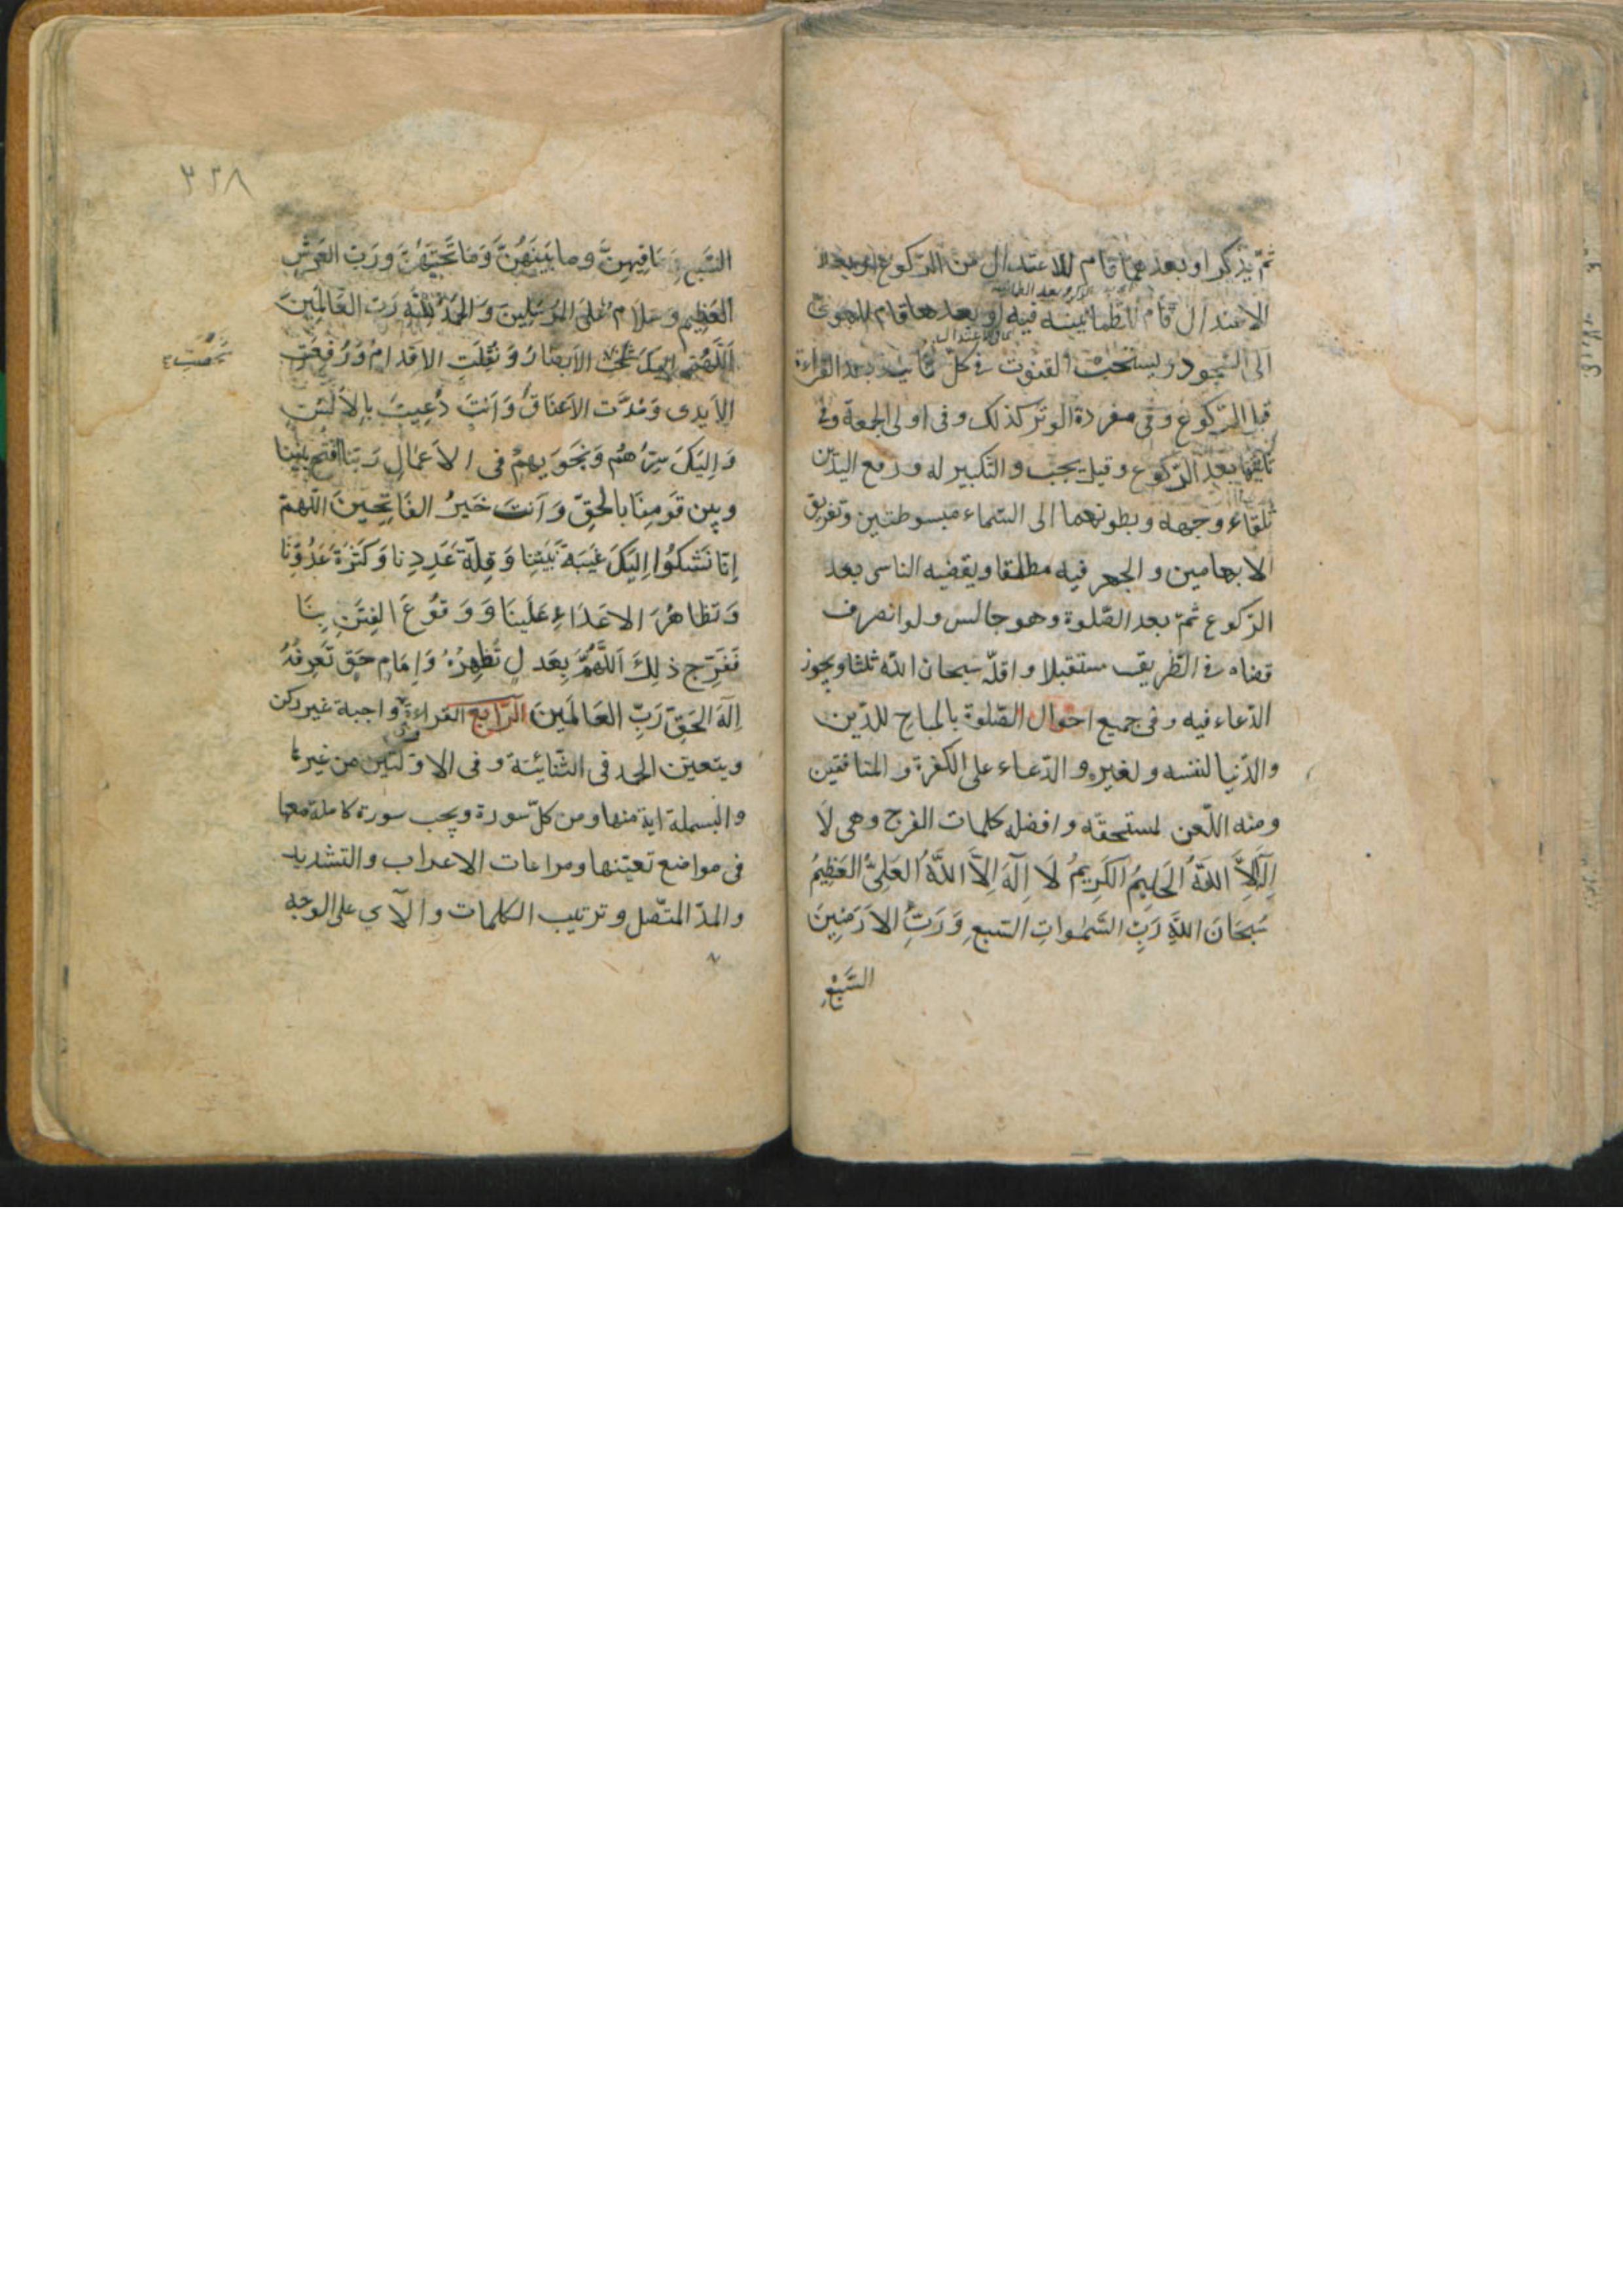 ثمّ يذكر او بعدهما قام للاعتدال من الركوع او بعد
الاعتدال قام للطمانينه فيه او بعدها قام للهوىّ
الى السّجود ويستحبّ القنوت فى كلّ ثانية بعد القراءة
قبل الرّكوع وفى مفردة الوتر كذلك وفى اولى الجمعة وفى
ثانيتها بعد الرّكوع وقيل يجب والتكبير له ورفع اليدين
تلقاء وجهه وبطونهما الى السّماء مبسوطتين وتفريق
الابهامين والجهر فيه مطلقا ويقضيه الناسى بعد
الرّكوع ثمّ بعد الصّلوة وهو جالس ولو انصرف
قضاه فى الطّريق مستقبلا واقلّه سبحان الله ثلثا ويجوز
الدّعاء فيه وفى جميع احوال الصّلوة بالمباح للدّين
والدّنيا لنفسه ولغيره والدّعاء على الكفرة والمنافقين
ومنه اللّعن لمستحقّه وافضله كلمات الفرج وهى لَا
اِلٰهَ اِلَّا اللهُ الحَلِيمُ الكَرِيمُ لَا اِلٰهَ اِلَّا اللهُ العَلِىُّ العَظِيمُ
سُبحَانَ اللهِ رَبِّ السَّمٰواتِ السّبعِ وَرَبِّ الاَرَضِينَ
السَّبْعِ
٣٣٨
السَّبعِ وَمَا فِيهِنَّ وما بَينَهُنَّ وَمَا تَحتَهُنَّ وَرَبِّ العَرشِ
العَظِيمِ وسَلَامٌ عَلَى المُرسَلِينَ وَالحَمدُ لِلّٰهِ رَبِّ العَالَمِينَ
اَللّهُمَّ اِلَيكَ الاَبصَارُ وَنُقِلَتِ الاَقدَامُ وَرُفِعَتِ
الاَيدِى وَمُدَّتِ الاَعنَاقُ وَاَنتَ دُعِيتَ بِالاَلسُنِ
وَاِلَيكَ سِرُّهُم وَنَجوٰيهُم فى الاَعمَالِ رَبَّنَا افتَح بَينَنا
وبين قَومِنَا بالحَقِّ وَاَنتَ خَيرُ الفَاتِحِينَ اللّهمّ
اِنّا نَشكُوا اِلَيكَ غَيبَةَ نَبِيِّنا وَقِلّةَ عَدَدِنا وَكَثرَةَ عَدُوِّنَا
وَتظاهُرَ الاعدَاءِ عَلَينَا وَوَقوُعَ الفِتَنِ بِنَا
فَفَرِّج ذلِكَ اَللَّهُمَّ بِعَدلٍ تُظهِرُهُ وَاِمَامِ حَقٍّ تَعرِفُهُ
اِلٰهَ الحَقِّ رَبِّ العَالَمِينَ الرّابع القراءة واجبة غير ركن
ويتعيّن الحمد فى الثّنائيّة وفى الاوّلتين من غيرها
والبسملة اية منها ومن كلّ سورة ويجب سورة كاملة معها
فى مواضع تعيّنها ومراعات الاعراب والتشديد
والمدّ المتّصل وترتيب الكلمات والآي على الوجه